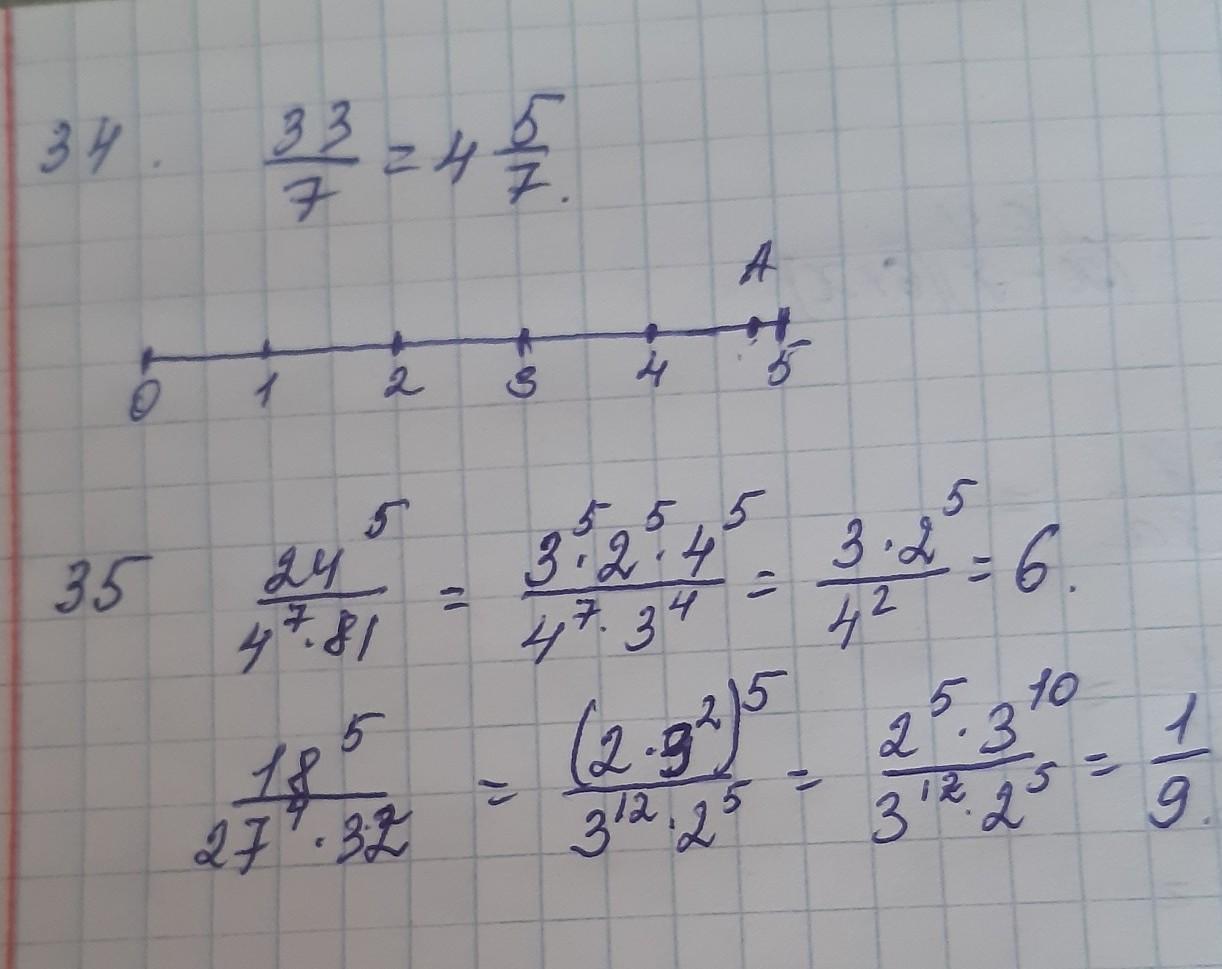 34. 33/7 = 4 5/7.
A
0 1 2 3 4 5
35 24^5/(4^7·81) = (3^5·2^5·4^5)/(4^7·3^4) = (3·2^5)/4^2 = 6.
18^5/(27^4·32) = (2·3^2)^5/(3^12·2^5) = (2^5·3^10)/(3^12·2^5) = 1/9.